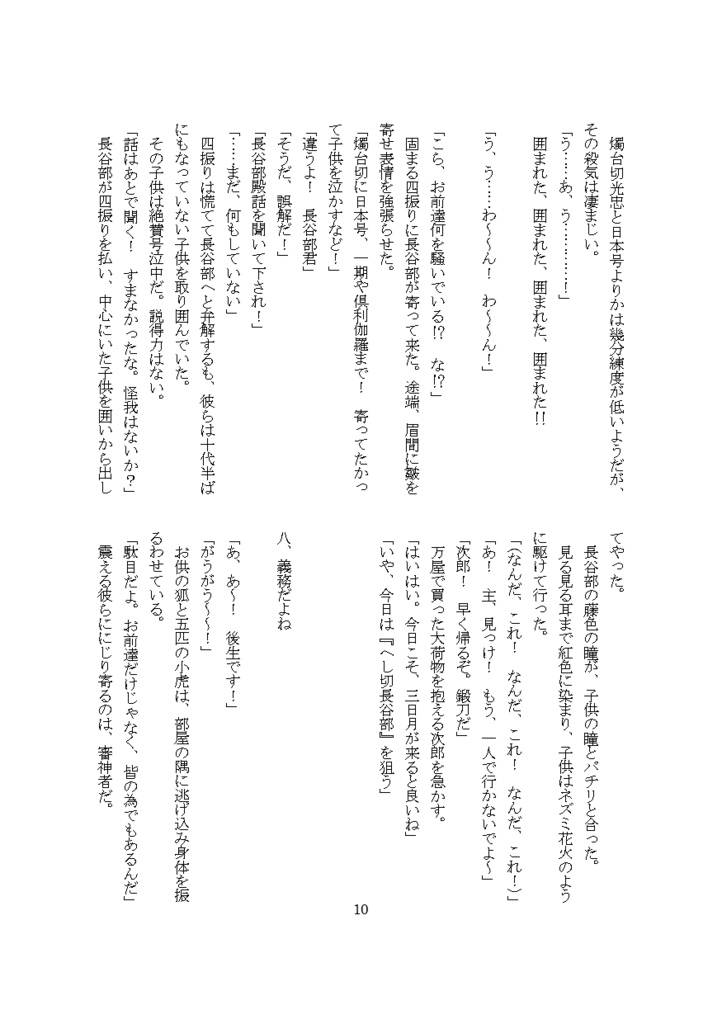 燭台切光忠と日本号よりかは幾分練度が低いようだが、
その殺気は凄まじい。
「う……あ、う…………！」
囲まれた、囲まれた、囲まれた、囲まれた!!
「う、う……わ～～ん！　わ～～ん！」
「こら、お前達何を騒いでいる!?　な!?」
固まる四振りに長谷部が寄って来た。途端、眉間に皺を
寄せ表情を強張らせた。
「燭台切に日本号、一期や倶利伽羅まで！　寄ってたかっ
て子供を泣かすなど！」
「違うよ！　長谷部君」
「そうだ、誤解だ！」
「長谷部殿話を聞いて下され！」
「……まだ、何もしていない」
四振りは慌てて長谷部へと弁解するも、彼らは十代半ば
にもなっていない子供を取り囲んでいた。
その子供は絶賛号泣中だ。説得力はない。
「話はあとで聞く！　すまなかったな。怪我はないか？」
長谷部が四振りを払い、中心にいた子供を囲いから出し
てやった。
長谷部の藤色の瞳が、子供の瞳とパチリと合った。
見る見る耳まで紅色に染まり、子供はネズミ花火のよう
に駆けて行った。
「（なんだ、これ！　なんだ、これ！　なんだ、これ！）」
「あ！　主、見っけ！　もう、一人で行かないでよ～」
「次郎！　早く帰るぞ。鍛刀だ」
万屋で買った大荷物を抱える次郎を急かす。
「はいはい。今日こそ、三日月が来ると良いね」
「いや、今日は『へし切長谷部』を狙う」
八、義務だよね
「あ、あ～！　後生です！」
「がうがう～～！」
お供の狐と五匹の小虎は、部屋の隅に逃げ込み身体を振
るわせている。
「駄目だよ。お前達だけじゃなく、皆の為でもあるんだ」
震える彼らににじり寄るのは、審神者だ。
10